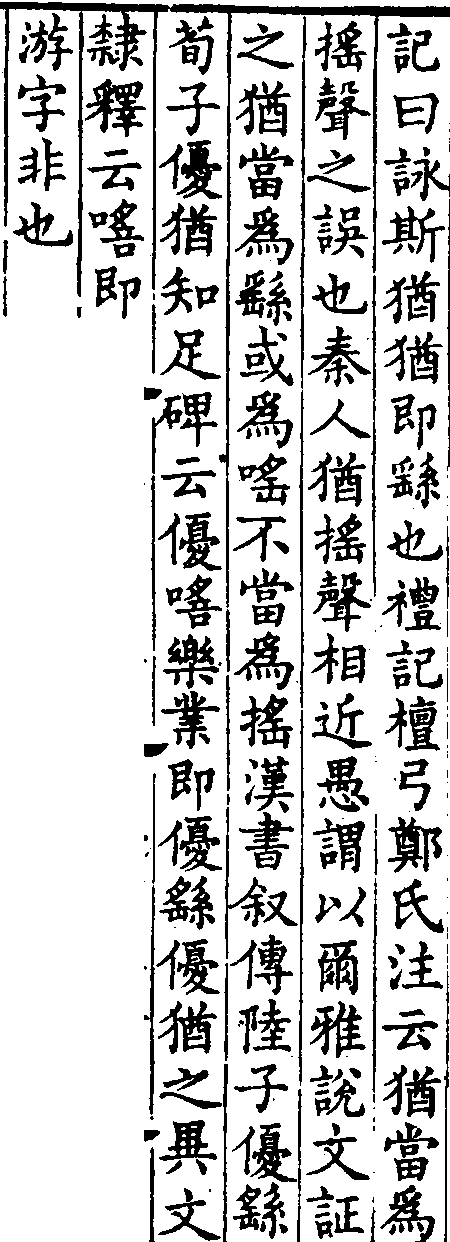 記曰詠斯猶猶即繇也禮記檀弓鄭氏注云猶當爲
搖聲之誤也秦人猶搖聲相近愚謂以爾雅說文証
之猶當爲繇或爲嗂不當爲搖漢書叙傳陸子優繇
荀子優猶知足碑云優嗂樂業即優繇優猶之異文
隸釋云嗂即
游字非也